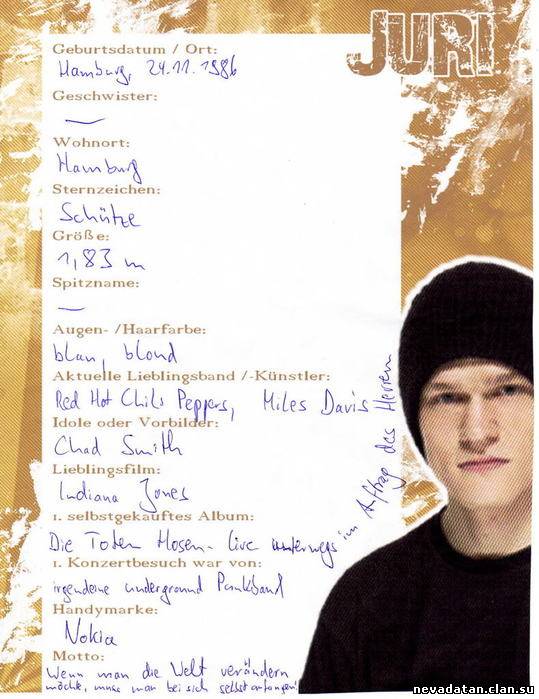 JURI
Geburtsdatum / Ort:
Hamburg, 24.11.1986
Geschwister:
—
Wohnort:
Hamburg
Sternzeichen:
Schütze
Größe:
1,83 m
Spitzname:
—
Augen- /Haarfarbe:
blau, blond
Aktuelle Lieblingsband /-Künstler:
Red Hot Chili Peppers, Miles Davis
Idole oder Vorbilder:
Chad Smith
Lieblingsfilm:
Indiana Jones
1. selbstgekauftes Album:
Die Toten Hosen - Live unterwegs im Auftrag des Herren
1. Konzertbesuch war von:
irgendeine underground Punkband
Handymarke:
Nokia
Motto:
Wenn man die Welt verändern
möchte, muss man bei sich selbst anfangen!
nevadatan.clan.su